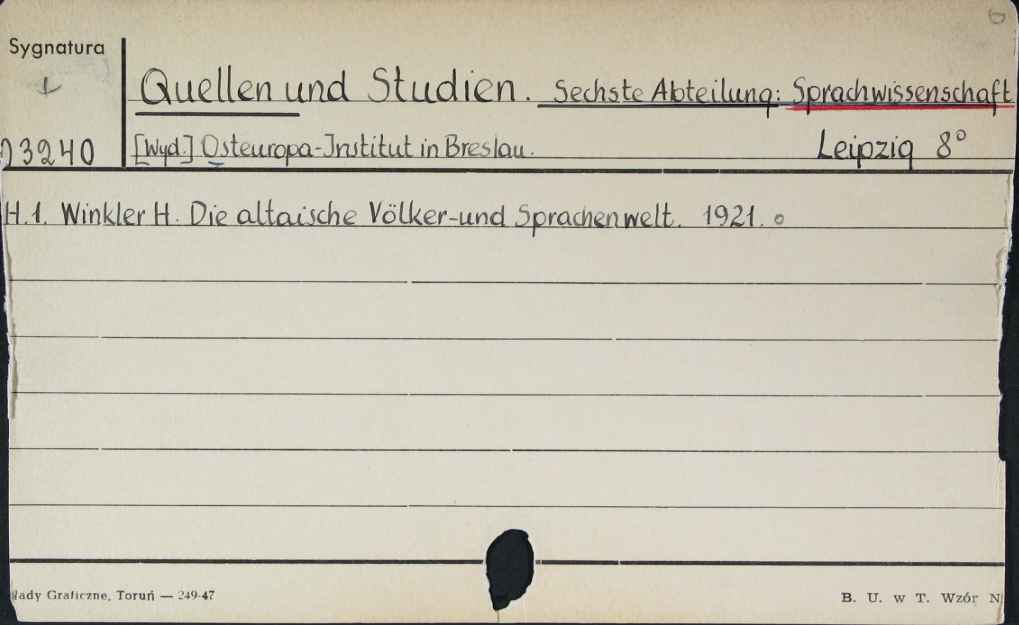 Sygnatura
Quellen und Studien. Sechste Abteilung: Sprachwissenschaft
23240 [Wyd.] Osteuropa-Institut in Breslau. Leipzig 8°
H.1. Winkler H. Die altaische Völker-und Sprachenwelt. 1921.
łady Graficzne, Toruń — 249-47
B. U. w T. Wzór N